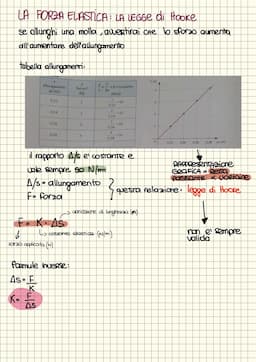 LA FORZA ELASTICA: LA LEGGE di Hooke
se allunghi una molla, avvertirai che lo sforzo aumenta
all'aumentare dell'allungamento
tabella allungamenti:
il rapporto Δ/s e' costante e
vale sempre 50 N/m
Δ/s = allungamento
F = forza
questa relazione: legge di Hooke
RAPPRESENTAZIONE
GRAFICA = Retta
passante x l'origine
non e' sempre
valida
variazione di lunghezza (m)
F = K · Δs
costante elastica (N/m)
forza applicata (N)
formule inverse:
Δs = F/K
K = F/Δs